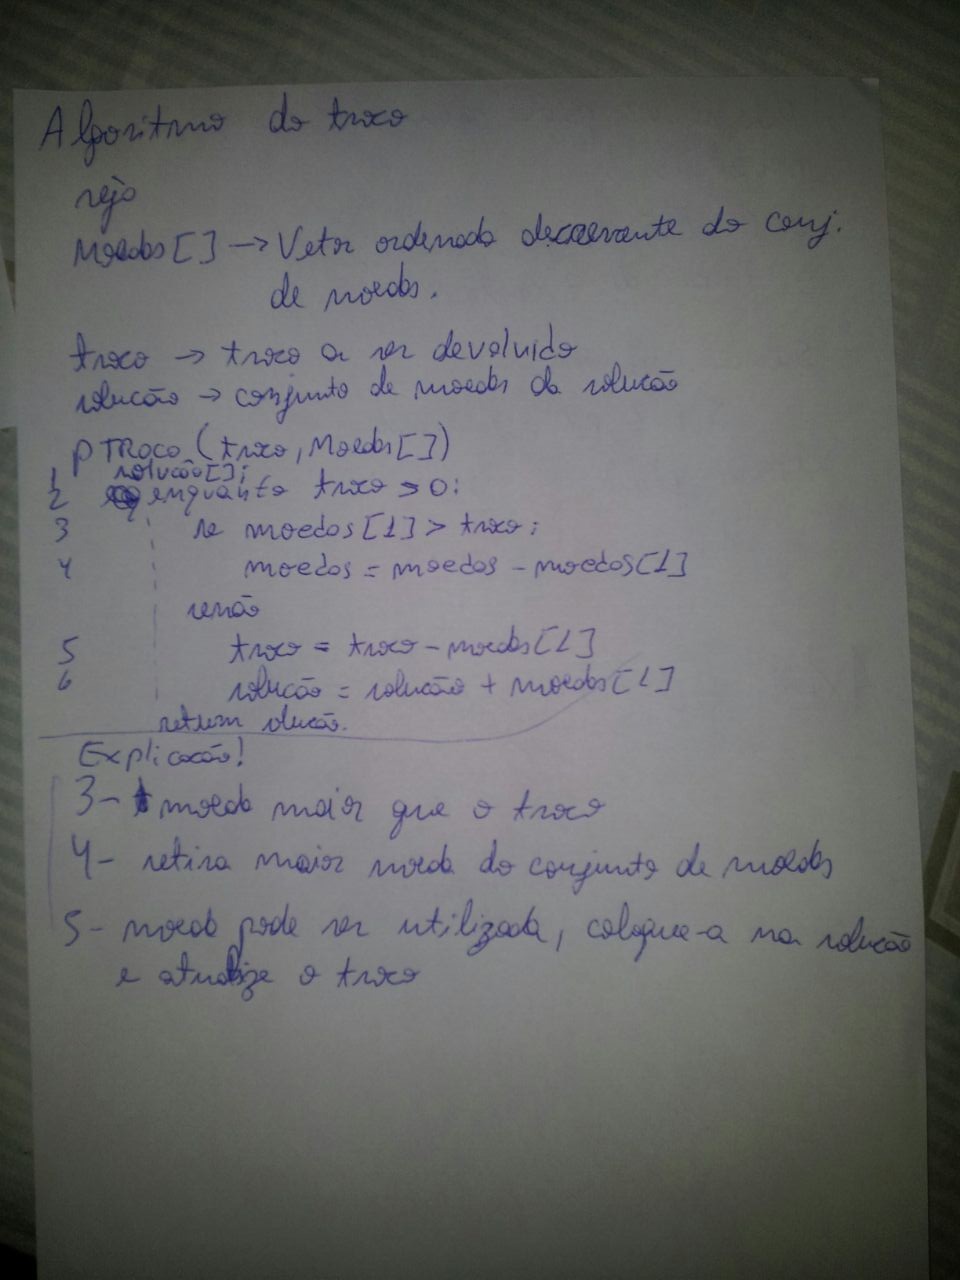 Algoritmo do troco
seja
Moedas[] → Vetor ordenado decrescente do conj.
de moedas.
troco → troco a ser devolvido
solucão → conjunto de moedas da solucão
P TROCO (troco, Moedas[])
1 solucão[];
2 enquanto troco > 0:
3 se moedas[1] > troco:
4 moedas = moedas - moedas[1]
senão
5 troco = troco - moedas[1]
6 solucão = solucão + moedas[1]
return solucão.
Explicacão!
3- moeda maior que o troco
4- retira maior moeda do conjunto de moedas
5- moeda pode ser utilizada, coloque-a na solucão
e atualize o troco